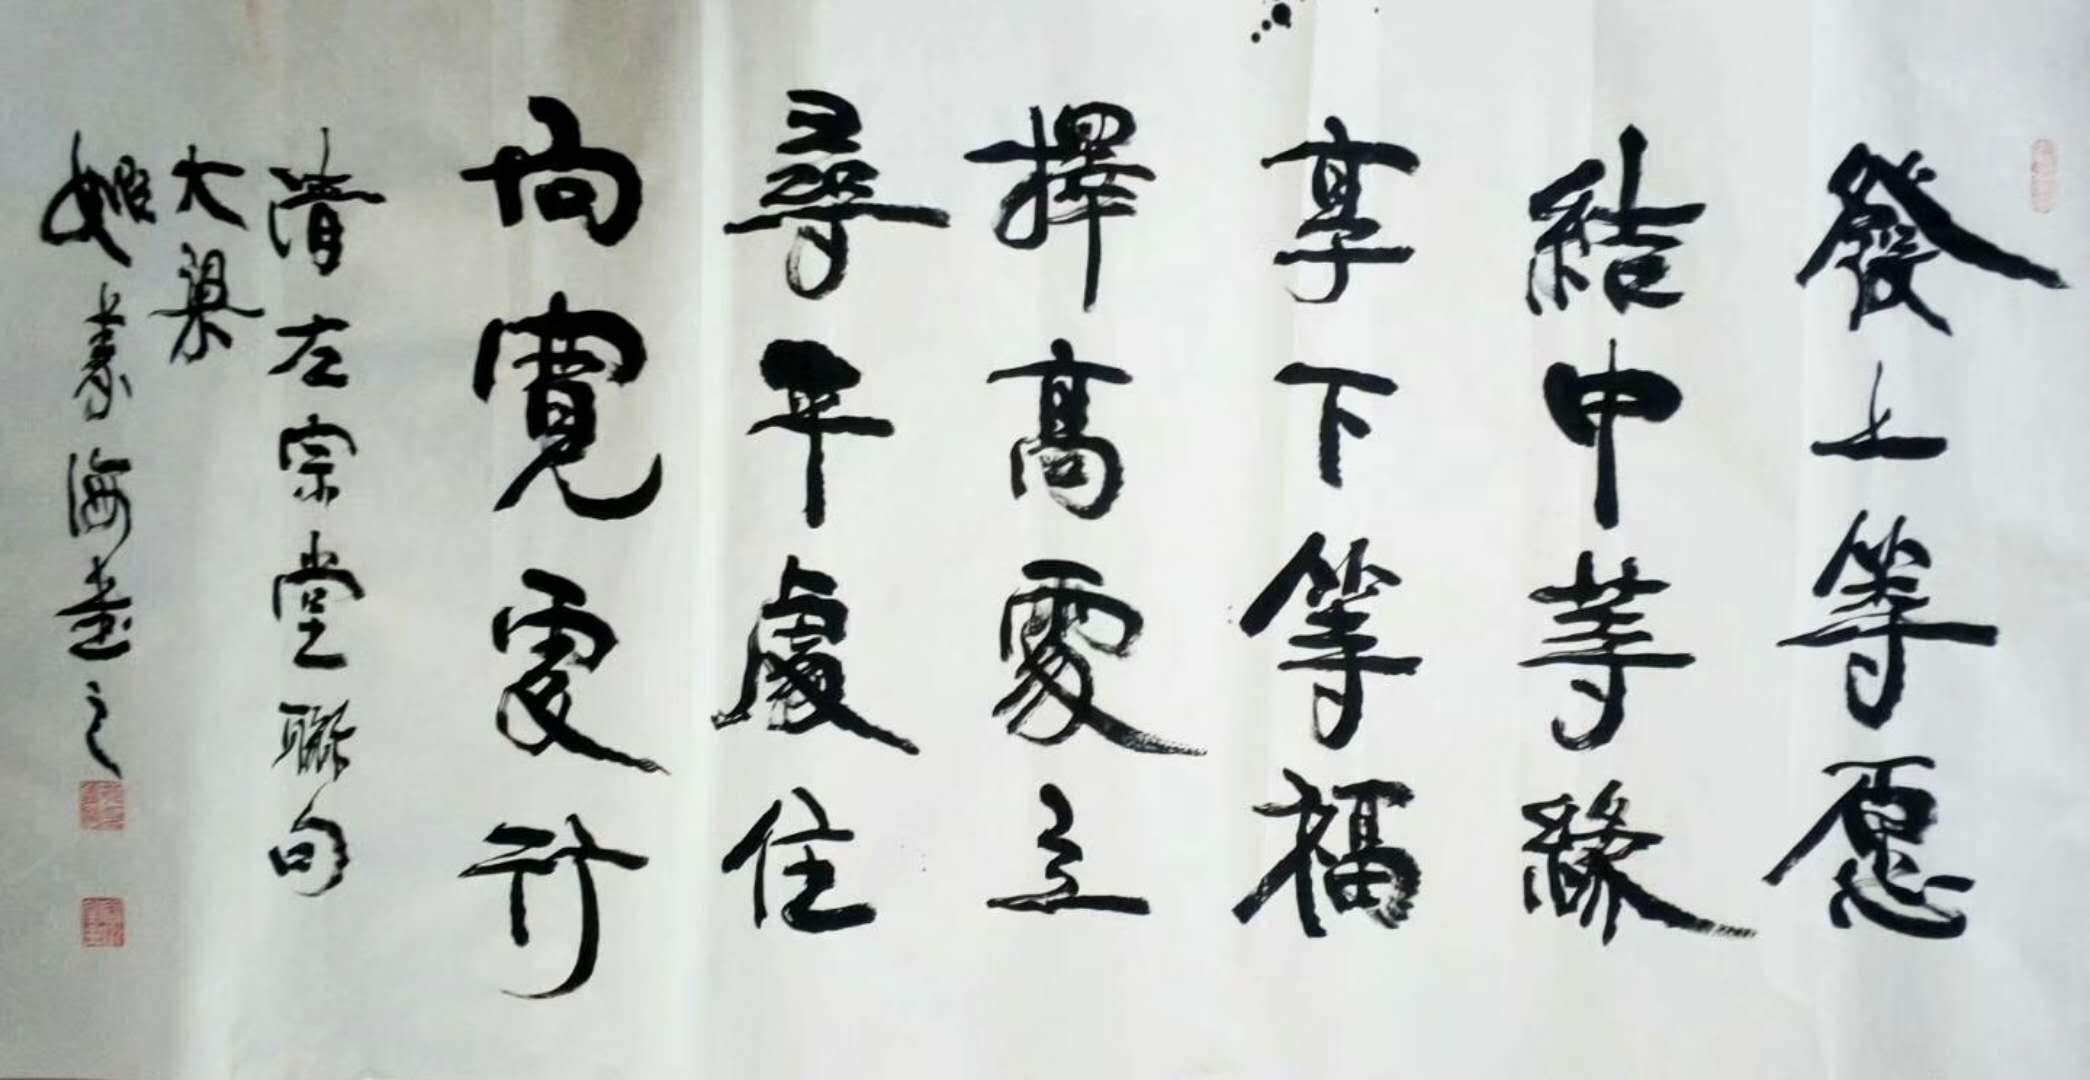 發上等愿
結中等緣
享下等福
擇高處立
尋平處住
向寬處行
清左宗堂聯句
大梁
姬素海書之